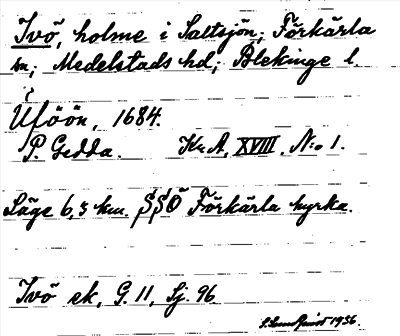 Ivö, holme i Saltsjön; Förkärla
sn; Medelstads hd; Blekinge l.
Uföön, 1684.
P. Gedda. Kr. A. XVIII. N:o 1.
Läge 6,5 km. SSÖ Förkärla kyrka.
Ivö sk, G. 11, Sj. 96
1956.